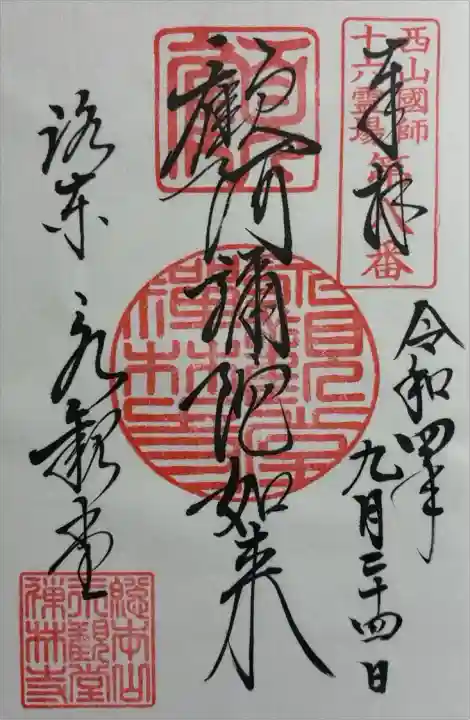 西山國師
十六霊場第番
奉拝
令和四年
九月二十四日
顧阿彌陀如来
洛东 永観堂
總本山
永觀堂
禅林寺